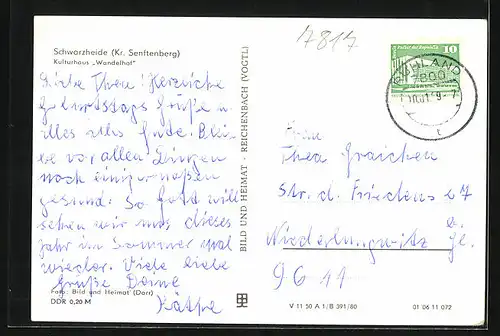 Schwarzheide (Kr. Senftenberg)
Kulturhaus „Wandelhof"
7817
10
RUHLAND
7800
Liebe Thea! Herzliche
Geburtstags Grüße u.
alles alles Gute. Blei-
be vor allen Dingen
noch einigermaßen
gesund. So Gott will
sehen wir uns dieses
Jahr im Sommer mal
wieder. Viele liebe
Grüße Deine
Käthe
Foto: Bild und Heimat (Dart)
DDR 0,20 M
BILD UND HEIMAT · REICHENBACH (VOGTL)
Frau
Thea Graichen
Str. d. Friedens 67
Niederlungwitz
9611
V 11 50 A 1/B 391/80
01 06 11 072